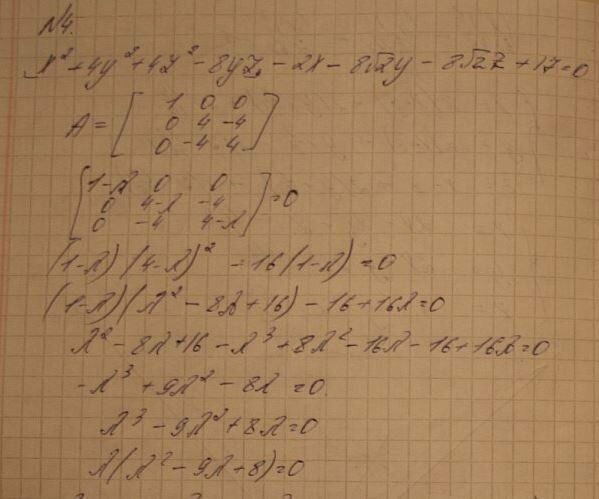 №4.
x² + 4y² + 4z² - 8yz - 2x - 8√2y - 8√2z + 17 = 0
A = [ 1 0 0
0 4 -4
0 -4 4 ]
[ 1-λ 0 0
0 4-λ -4
0 -4 4-λ ] = 0
(1-λ)(4-λ)² - 16(1-λ) = 0
(1-λ)(λ² - 8λ + 16) - 16 + 16λ = 0
λ² - 8λ + 16 - λ³ + 8λ² - 16λ - 16 + 16λ = 0
-λ³ + 9λ² - 8λ = 0
λ³ - 9λ² + 8λ = 0
λ(λ² - 9λ + 8) = 0